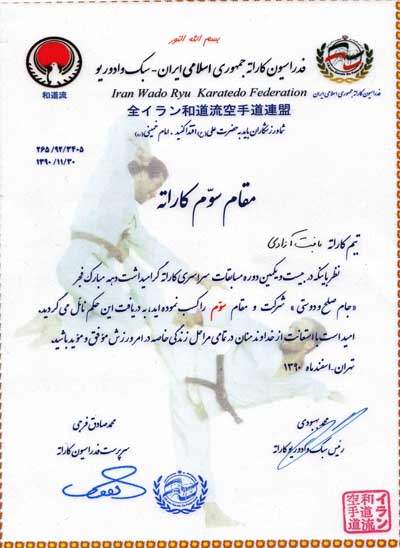 بسم الله النور
فدراسیون کاراته جمهوری اسلامی ایران - سبک وادوریو
Iran Wado Ryu Karatedo Federation
全イラン和道流空手道連盟
和道流
فدراسیون کاراته جمهوری اسلامی ایران
شما ورزشکاران باید به حضرت علی (ع) اقتدا کنید. امام خمینی (ره)
۲۶۵/۹۲/۳۴۰۵
۱۳۹۰/۱۱/۳۰
مقام سوّم کاراته
تیم کاراته
نظر باینکه در بیست و یکمین دوره مسابقات سراسری کاراته گرامیداشت دهه مبارک فجر
«جام صلح و دوستی» شرکت و مقام سوّم را کسب نموده اید، به دریافت این حکم نائل می گردید.
امید است با استعانت از خداوند منان در تمامی مراحل زندگی خاصه در امر ورزش موفق و مؤید باشید.
تهران - اسفندماه ۱۳۹۰
محمد بهبودی
رئیس سبک وادوریو کاراته
محمد صادق فرجی
سرپرست فدراسیون کاراته
イラン
和道流
空手道